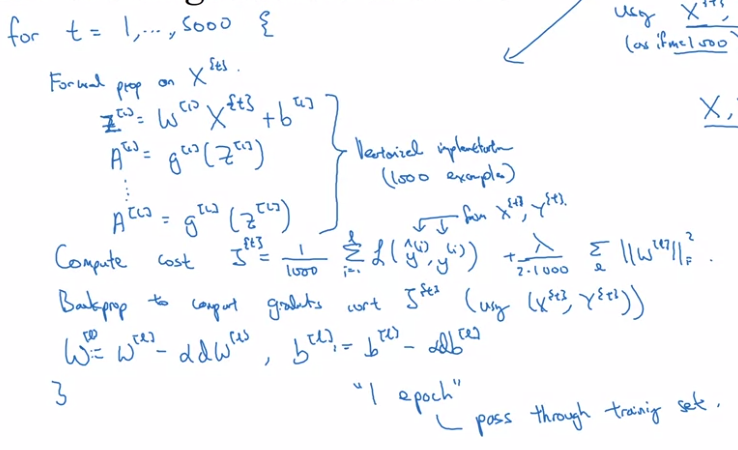 for t = 1,...,5000 {
usg X^{t},
(as if m=1000)
Forward prop on X^{t}.
Z^[1] = W^[1] X^{t} + b^[1]
X,
A^[1] = g^[1] (Z^[1])
Vectorized implementation
(1000 examples)
⋮
A^[L] = g^[L] (Z^[L])
from X^{t}, Y^{t}.
Compute cost J^{t} = 1/1000 Σ_{i=1}^{l} L(ŷ^(i), y^(i)) + λ/(2·1000) Σ_l ||W^[l]||_F^2.
Backprop to comput gradients wrt J^{t} (usg (X^{t}, Y^{t}))
W^[l] := W^[l] - αdW^[l], b^[l] := b^[l] - αdb^[l]
}
"1 epoch"
pass through training set.